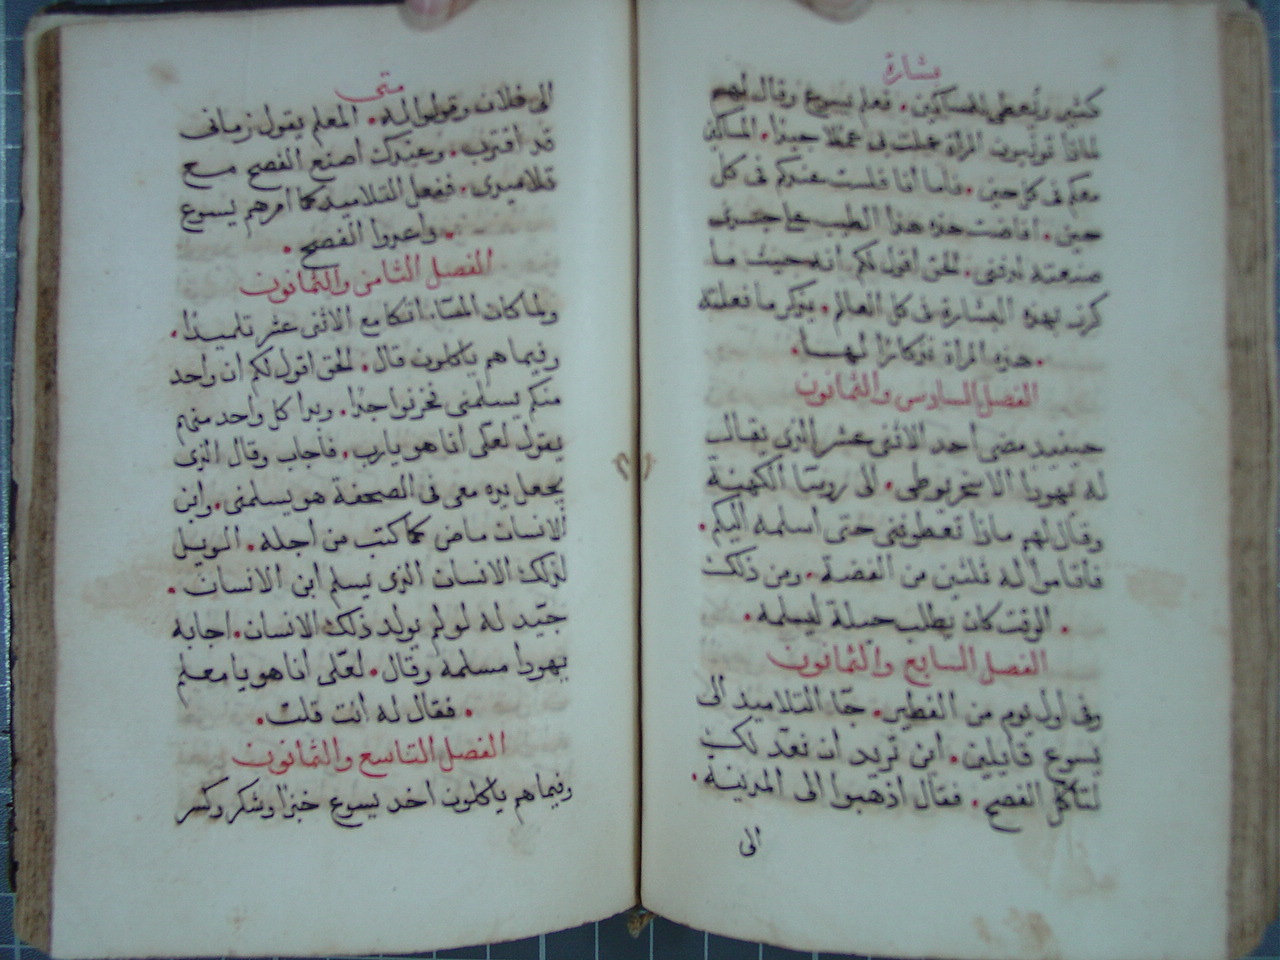 بشارة
كثير ويُعطى للمساكين. فعلم يسوع وقال لهم
لماذا تونبون المراة عملت بى عملا جيدا. المساكين
معكم فى كل حين. فاما انا فلست عندكم فى كل
حين. افاضت هذه هذا الطيب على جسدى
صنعته لدفنى. الحق اقول لكم انه حيث ما
كرز بهذه البشارة فى كل العالم. يذكر ما فعلته
. هذه المراة تذكارًا لها.
الفصل السادس والثمانون
حينيذ مضى احد الاثنى عشر الذى يقال
له يهودا الاسخريوطى. الى روسا الكهنة
وقال لهم ماذا تعطونى حتى اسلمه اليكم.
فاقاموا له ثلثين من الفضة. ومن ذلك
. الوقت كان يطلب حيلة ليسلمه.
الفصل السابع والثمانون
وفى اول يوم من الفطير. جآ التلاميذ الى
يسوع قايلين. اين تريد ان نعد لك
لتاكل الفصح. فقال اذهبوا الى المدينة.
الى
متى
الى فلان وقولوا له. المعلم يقول زمانى
قد اقترب. وعندك اصنع الفصح مع
تلاميذى. ففعل التلاميذ كما امرهم يسوع
. واعدوا الفصح.
الفصل الثامن والثمانون
ولما كان المسا. اتكا مع الاثنى عشر تلميذا.
وفيما هم ياكلون قال. الحق اقول لكم ان واحد
منكم يسلمنى فحزنوا جدا. وبدا كل واحد منهم
يقول لعلى انا هو يارب. فاجاب وقال الذى
يجعل يده معى فى الصحفة هو يسلمنى. وابن
الانسان ماض كما كتب من اجله. الويل
لذلك الانسان الذى يسلم ابن الانسان.
جيّد له لو لم يولد ذلك الانسان. اجابه
يهودا مسلمه وقال. لعلى انا هو يا معلم
. فقال له انت قلت.
الفصل التاسع والثمانون
وفيما هم ياكلون اخد يسوع خبزا وشكر وكسر